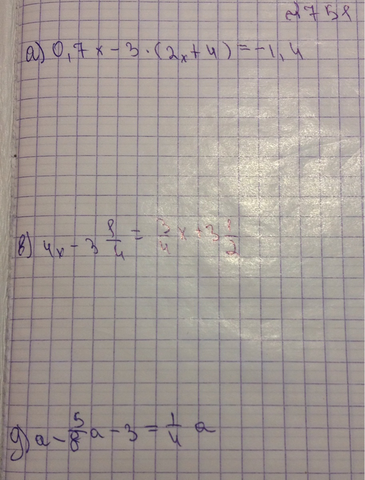 2751
а) 0,7x - 3 · (2x + 4) = -1,4
в) 4x - 3 1/4 = 3/4 x + 3 1/2
д) a - 5/8 a - 3 = 1/4 a